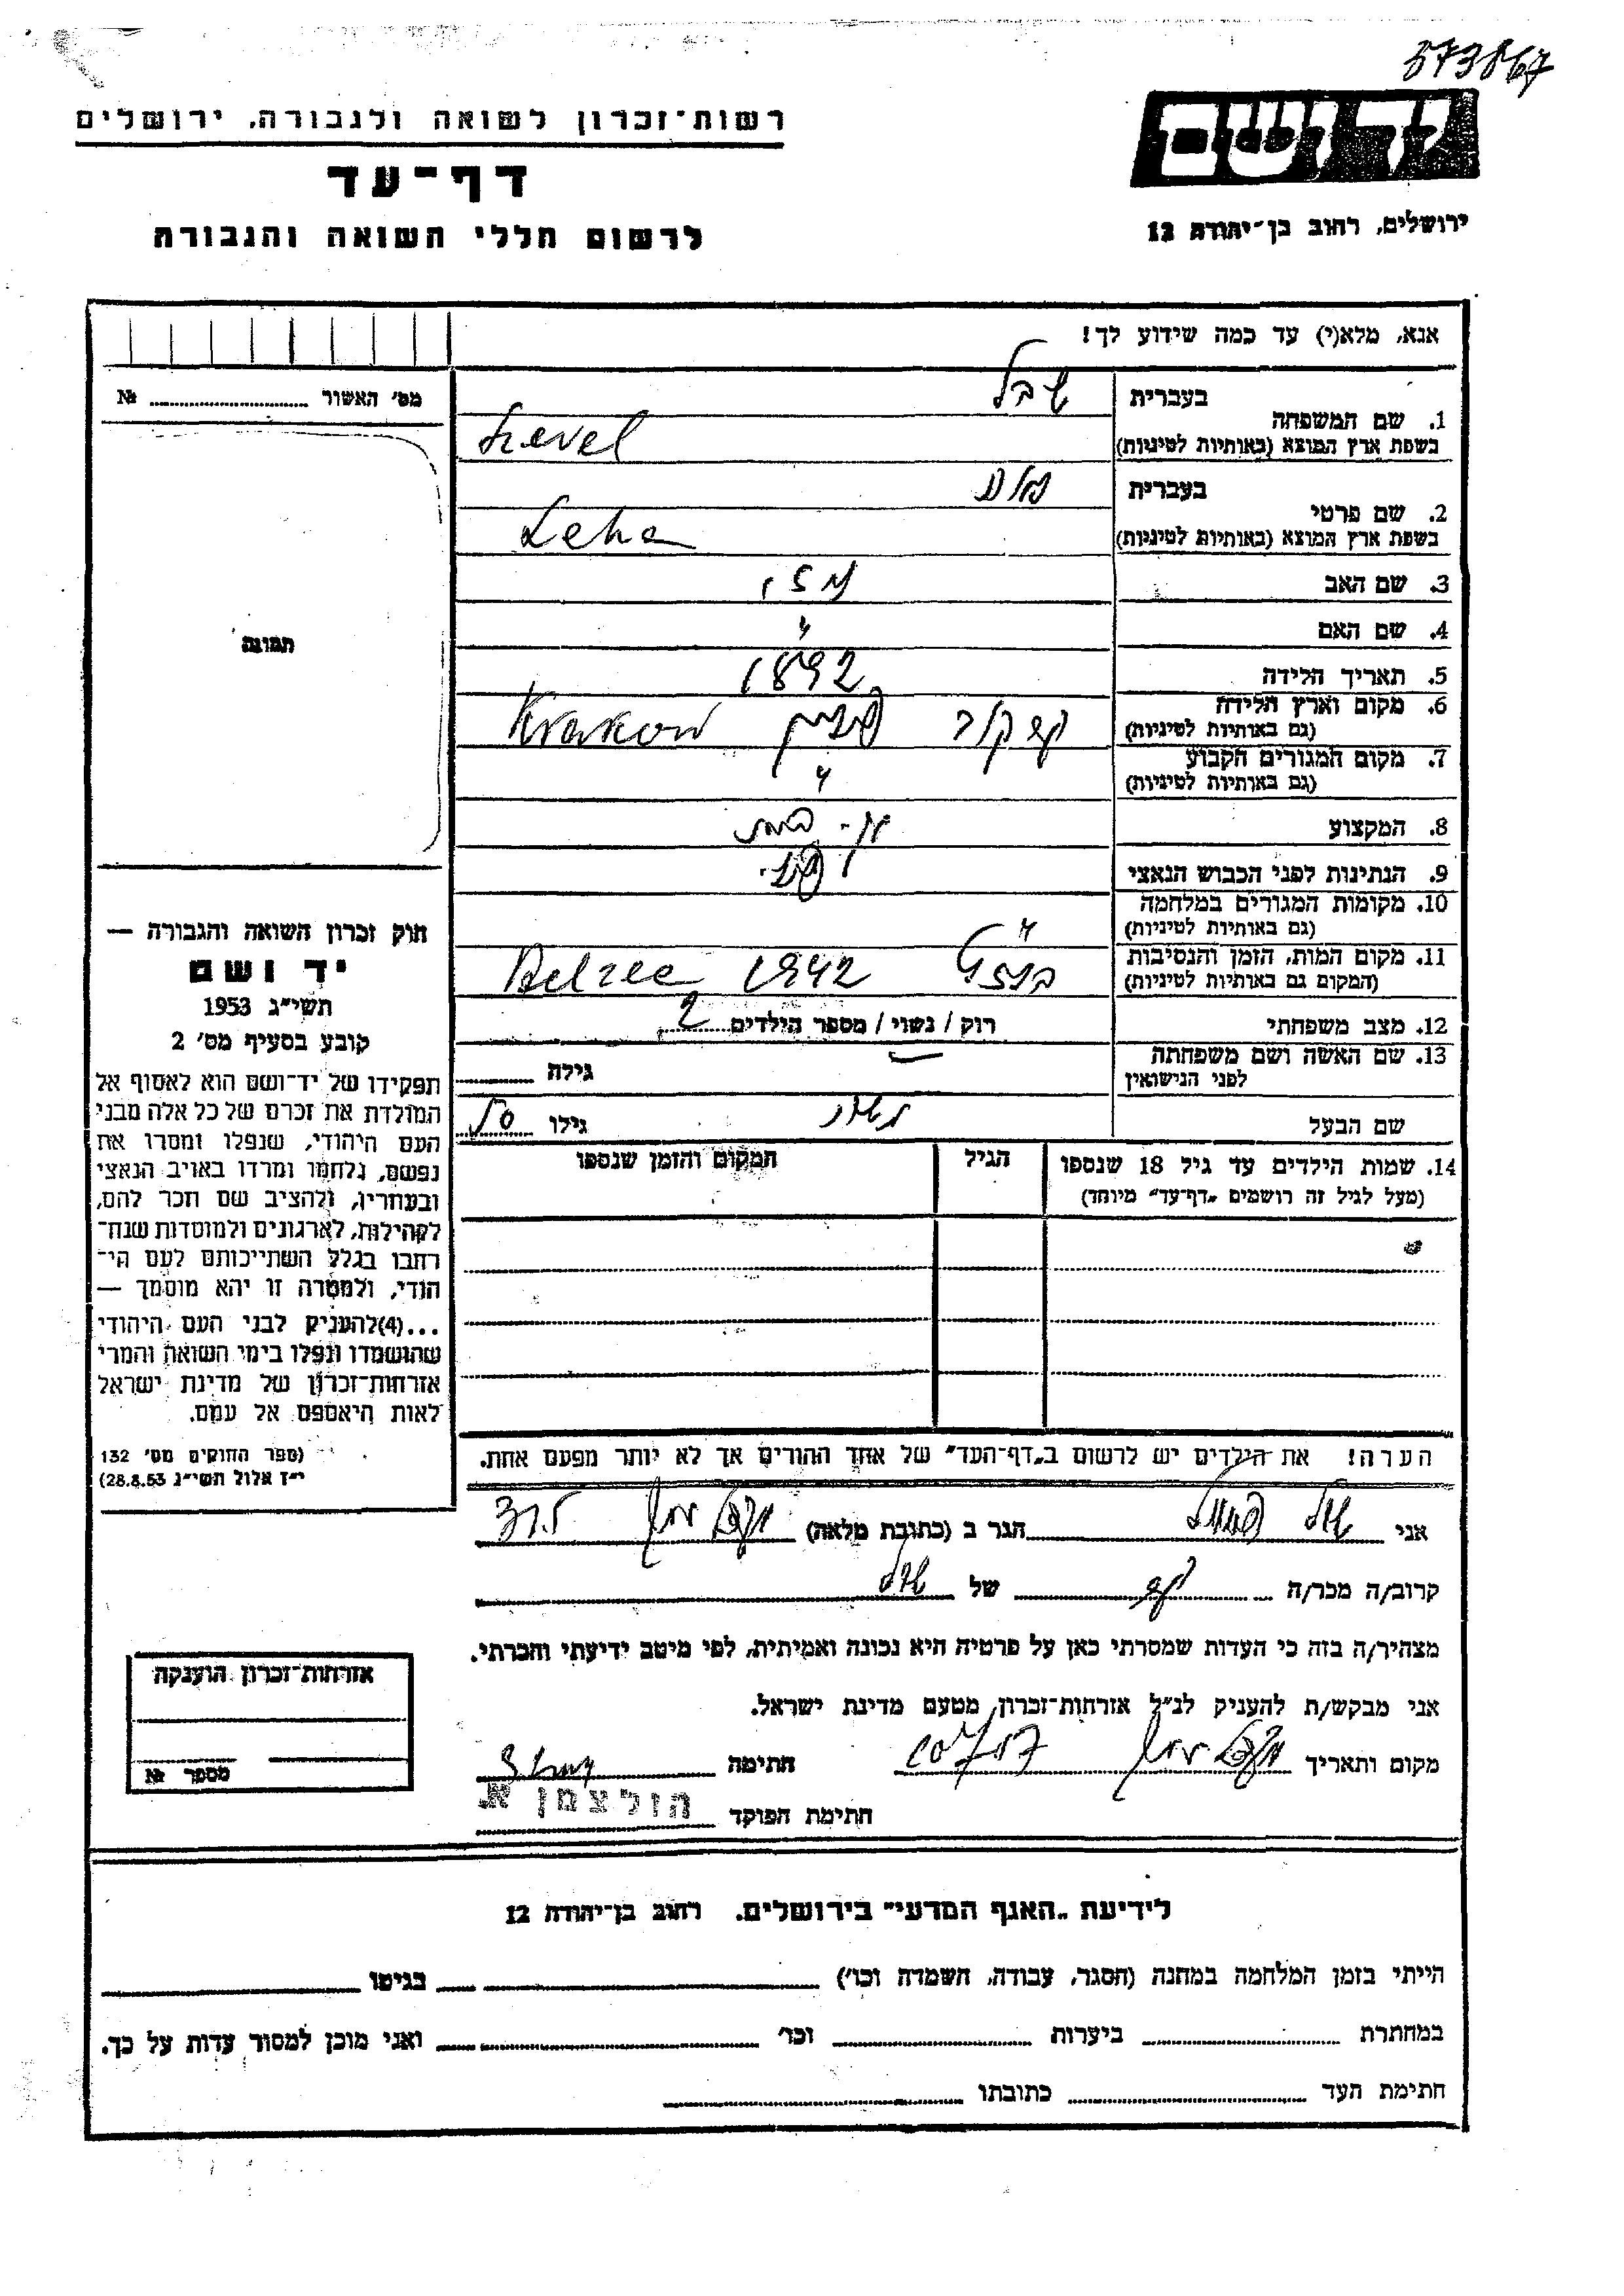 573867
רשות־זכרון לשואה ולגבורה, ירושלים
דף־עד
לרשום חללי השואה והגבורה
יד ושם
ירושלים, רחוב בן־יהודה 12
אנא, מלא(י) עד כמה שידוע לך!
מס׳ האשור № 
1. שם המשפחה
בעברית שבל
בשפת ארץ המוצא (באותיות לטיניות) Szevel
2. שם פרטי
בעברית
בשפת ארץ המוצא (באותיות לטיניות) Lena
3. שם האב
4. שם האם "
5. תאריך הלידה 1892
6. מקום וארץ הלידה (גם באותיות לטיניות) קרקוב פולין Krakow
7. מקום המגורים הקבוע (גם באותיות לטיניות) "
8. המקצוע עק. בית
9. הנתינות לפני הכבוש הנאצי פול.
10. מקומות המגורים במלחמה (גם באותיות לטיניות) "
11. מקום המות, הזמן והנסיבות (המקום גם באותיות לטיניות) בלזץ 1942 Belzec
12. מצב משפחתי רוק / נשוי / מספר הילדים 2
13. שם האשה ושם משפחתה לפני הנישואין גילה
שם הבעל גילו 50
14. שמות הילדים עד גיל 18 שנספו
(מעל לגיל זה רושמים „דף־עד״ מיוחד)
הגיל
המקום והזמן שנספו
הערה! את הילדים יש לרשום ב„דף־העד״ של אחד ההורים אך לא יותר מפעם אחת.
תמונה
חוק זכרון השואה והגבורה —
יד ושם
תשי״ג 1953
קובע בסעיף מס׳ 2
תפקידו של יד־ושם הוא לאסוף אל
המולדת את זכרם של כל אלה מבני
העם היהודי, שנפלו ומסרו את
נפשם, נלחמו ומרדו באויב הנאצי
ובעוזריו, ולהציב שם וזכר להם,
לקהילות, לארגונים ולמוסדות שנח־
רבו בגלל השתייכותם לעם הי־
הודי, ולמטרה זו יהא מוסמך —
...(4)להעניק לבני העם היהודי
שהושמדו ונפלו בימי השואה והמרי
אזרחות־זכרון של מדינת ישראל
לאות היאספם אל עמם.
(ספר החוקים מס׳ 132
י״ז אלול תשי״ג 28.8.53)
אני הגר ב (כתובת מלאה)
קרוב/ה מכר/ה של
מצהיר/ה בזה כי העדות שמסרתי כאן על פרטיה היא נכונה ואמיתית, לפי מיטב ידיעתי והכרתי.
אני מבקש/ת להעניק לנ״ל אזרחות־זכרון, מטעם מדינת ישראל.
מקום ותאריך חתימה
חתימת הפוקד הולצמן א.
אזרחות־זכרון הוענקה
מספר №
לידיעת „האגף המדעי״ בירושלים, רחוב בן־יהודה 12
הייתי בזמן המלחמה במחנה (הסגר, עבודה, השמדה וכו׳) בגיטו
במחתרת ביערות וכו׳ ואני מוכן למסור עדות על כך.
חתימת העד כתובתו